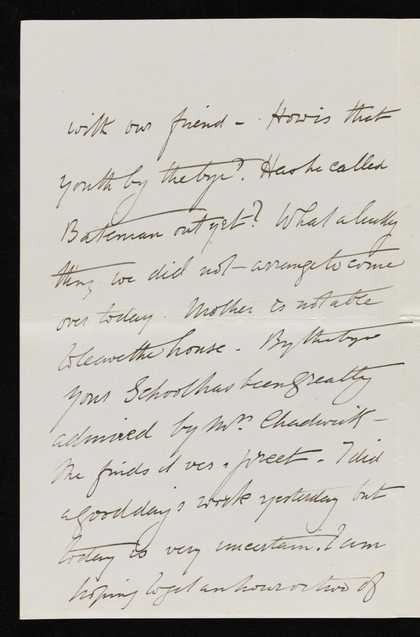 with our friend - How is that
youth by the bye? Has he called
Bateman out yet? What a lucky
thing we did not - arrange to come
over today. Mother is not able
to leave the house - By the bye
your School has been greatly
admired by Mrs. Chadwick -
She finds it
a good day's work yesterday but
today is very uncertain. I am
hoping to get an hour or two of